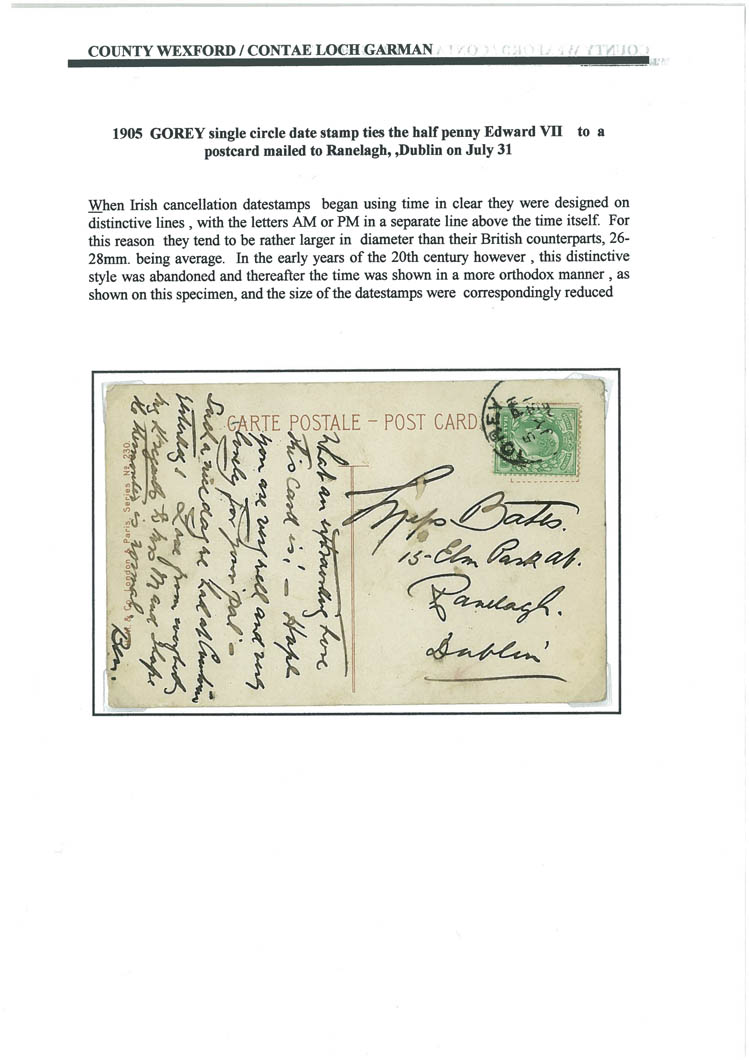 COUNTY WEXFORD / CONTAE LOCH GARMAN
1905 GOREY single circle date stamp ties the half penny Edward VII to a
postcard mailed to Ranelagh, ,Dublin on July 31
When Irish cancellation datestamps began using time in clear they were designed on
distinctive lines , with the letters AM or PM in a separate line above the time itself. For
this reason they tend to be rather larger in diameter than their British counterparts, 26-
28mm. being average. In the early years of the 20th century however , this distinctive
style was abandoned and thereafter the time was shown in a more orthodox manner , as
shown on this specimen, and the size of the datestamps were correspondingly reduced
CARTE POSTALE – POST CARD
GOREY
Miss Bates.
15 Elm Park av.
Ranelagh.
Dublin
What an
this card is! – Hope
you are very well and
lovely for your
Such a nice day we had at
Saturday! Love from
my regards to Mrs M and I hope
the is normal
London & Paris. Series No. 230.